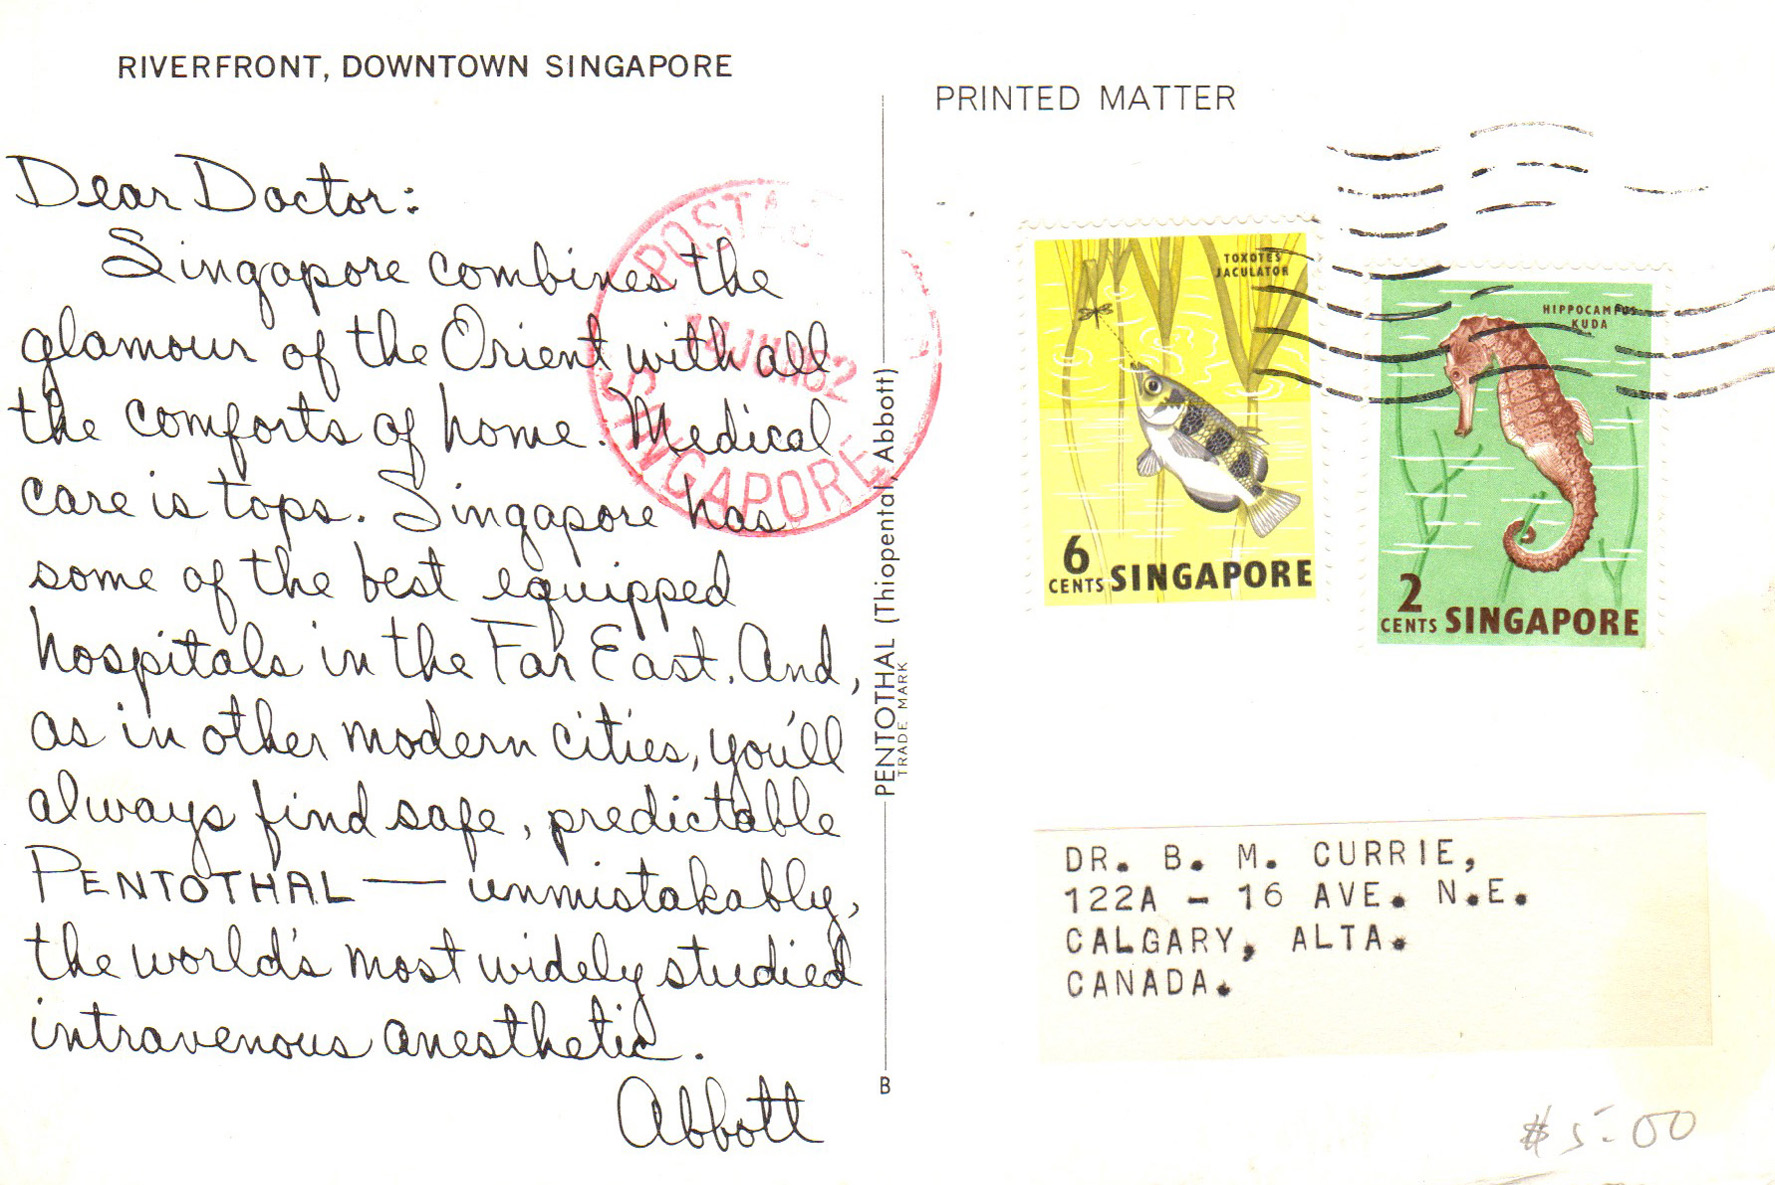 RIVERFRONT, DOWNTOWN SINGAPORE
Dear Doctor:
Singapore combines the
glamour of the Orient with all
the comforts of home. Medical
care is tops. Singapore has
some of the best equipped
hospitals in the Far East. And,
as in other modern cities, you'll
always find safe, predictable
PENTOTHAL — unmistakably,
the world's most widely studied
intravenous anesthetic.
Abbott
SINGAPORE
PENTOTHAL (Thiopental, Abbott)
TRADE MARK
B
PRINTED MATTER
TOXOTES
JACULATOR
6
CENTS SINGAPORE
HIPPOCAMPUS
KUDA
2
CENTS SINGAPORE
DR. B. M. CURRIE,
122A - 16 AVE. N.E.
CALGARY, ALTA.
CANADA.
$5.00